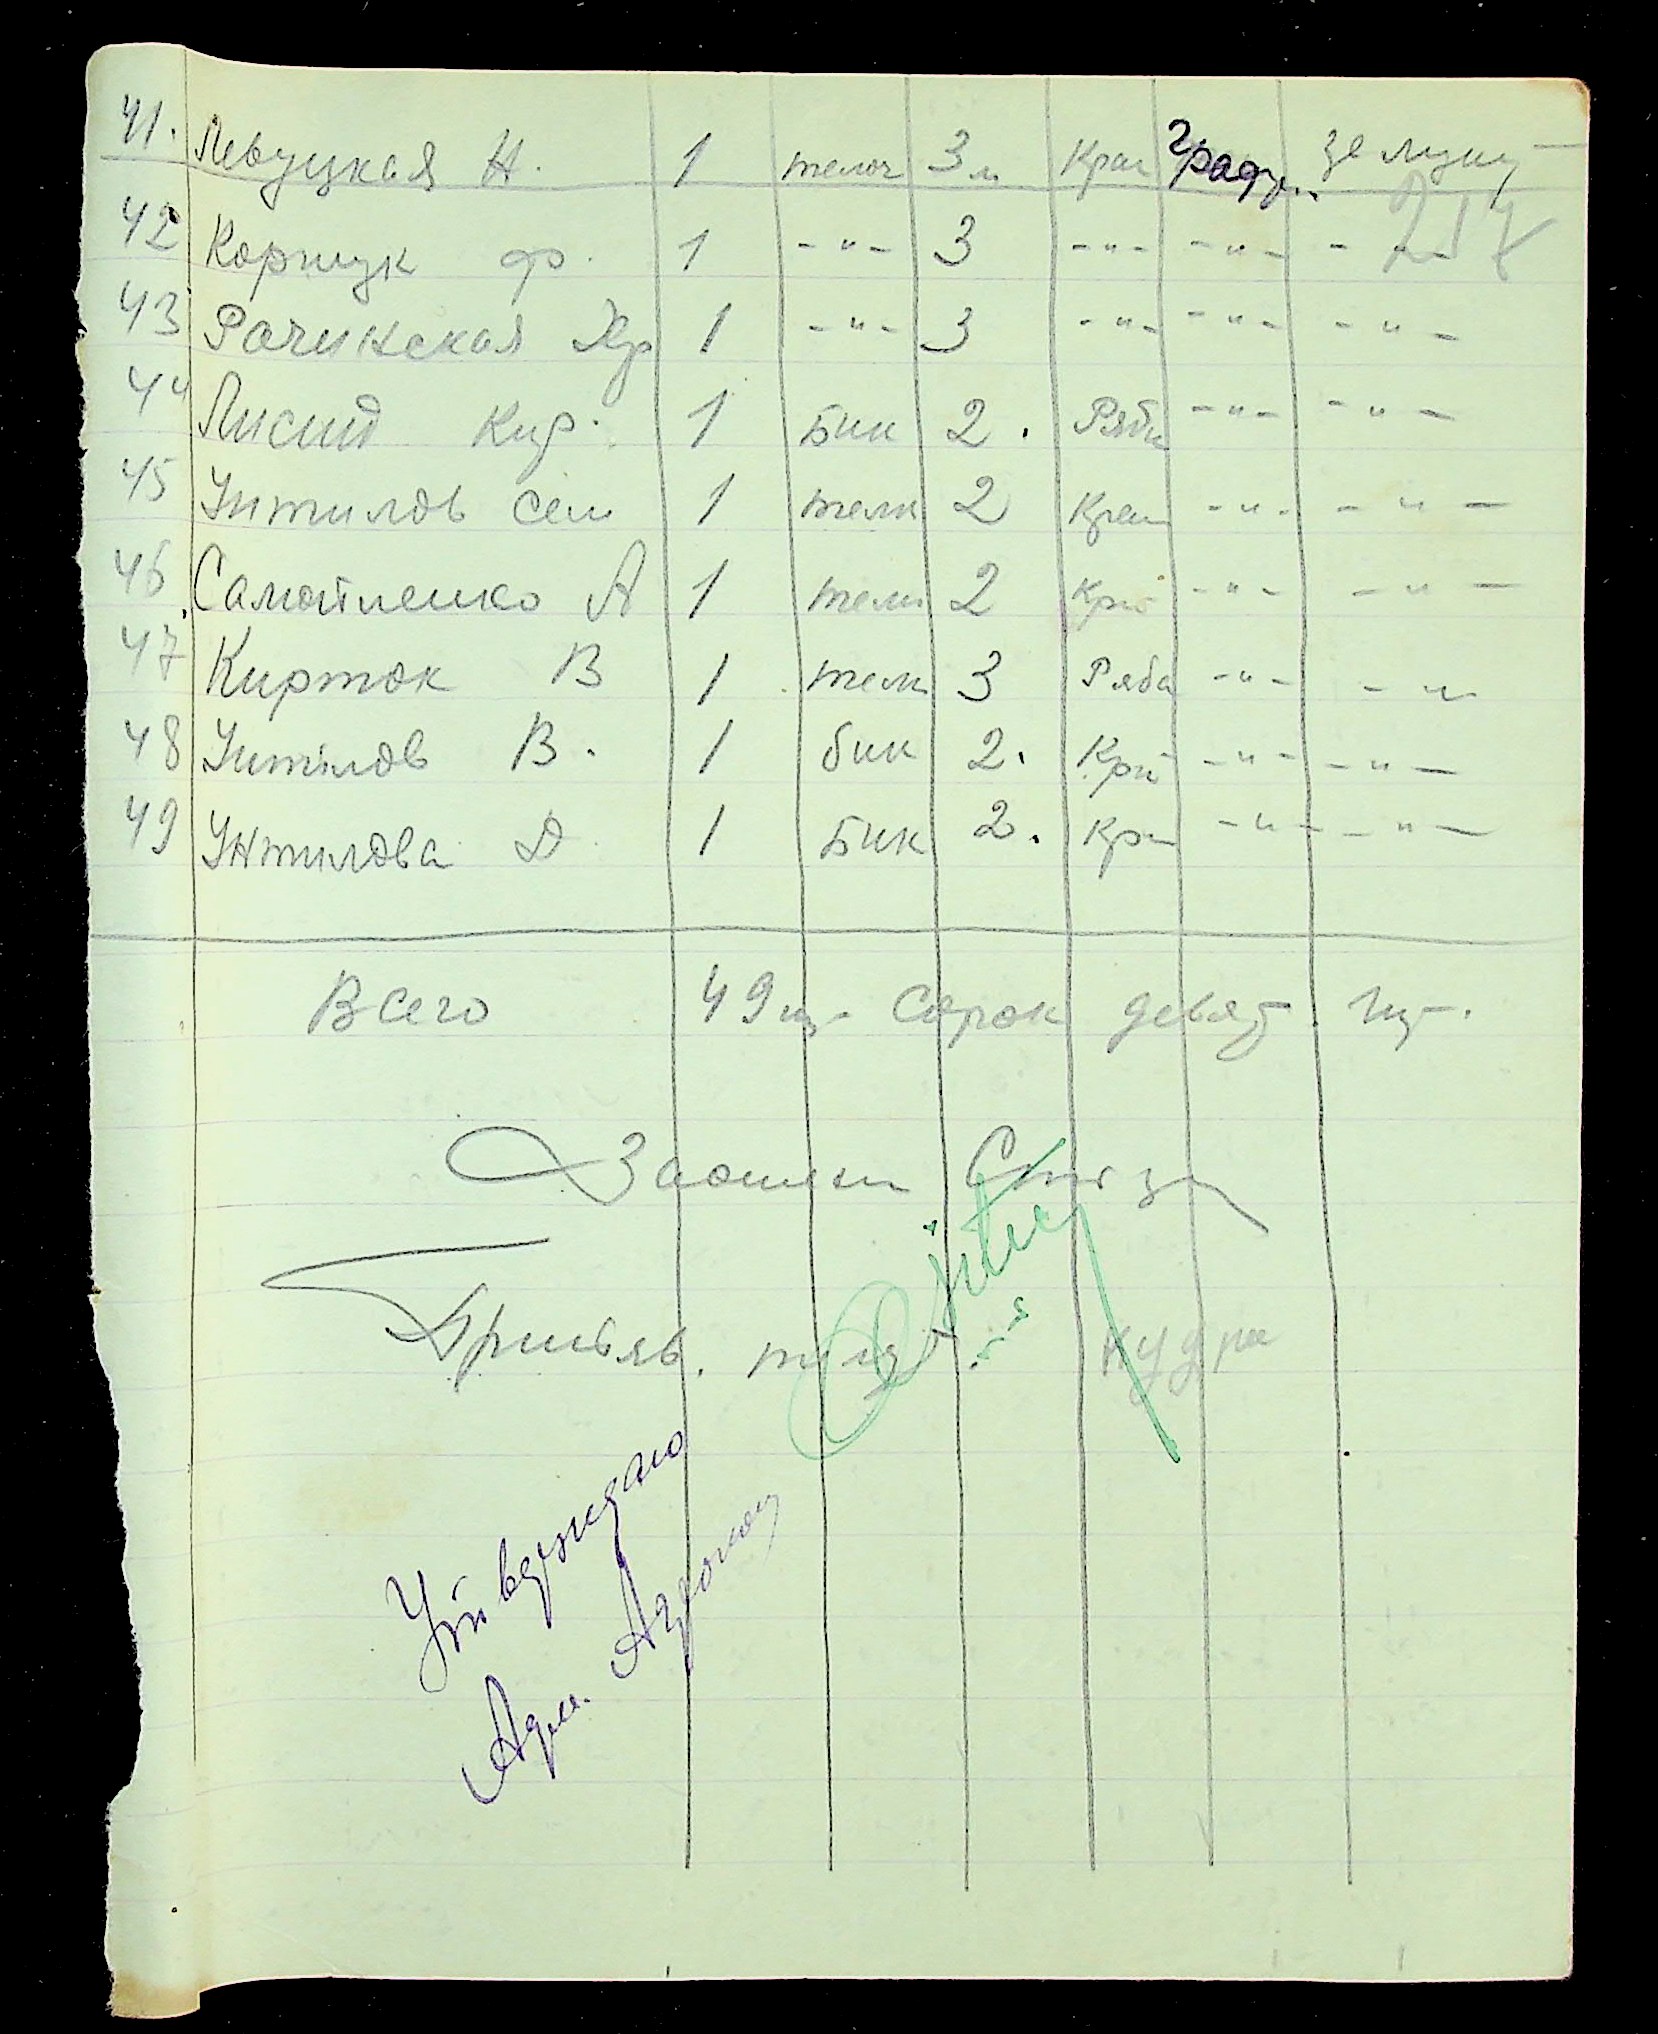 41. Левуцкая Н. 1 телоч 3 м Крас Граден.
42 Корщук Ф. 1 -"- 3 -"- -"- - " -
43 Рачинская Хр 1 -"- 3 -"- -"- - " -
44 Лисий Кир. 1 Бик 2. Ряби -"- - " -
45 Унтилов Сем 1 телк 2 Крас -"- - " -
46 Самойленко А 1 телк 2 Кра -"- - " -
47 Кирток В 1 телк 3 Ряба -"- - "
48 Унтилов В. 1 бик 2. Кра -"- - " -
49 Унтилова Д. 1 Бик 2. Кра -"- - " -
Всего 49 шт Сорок девят шт.
Кудра
Утверждаю
Адм. Агроном